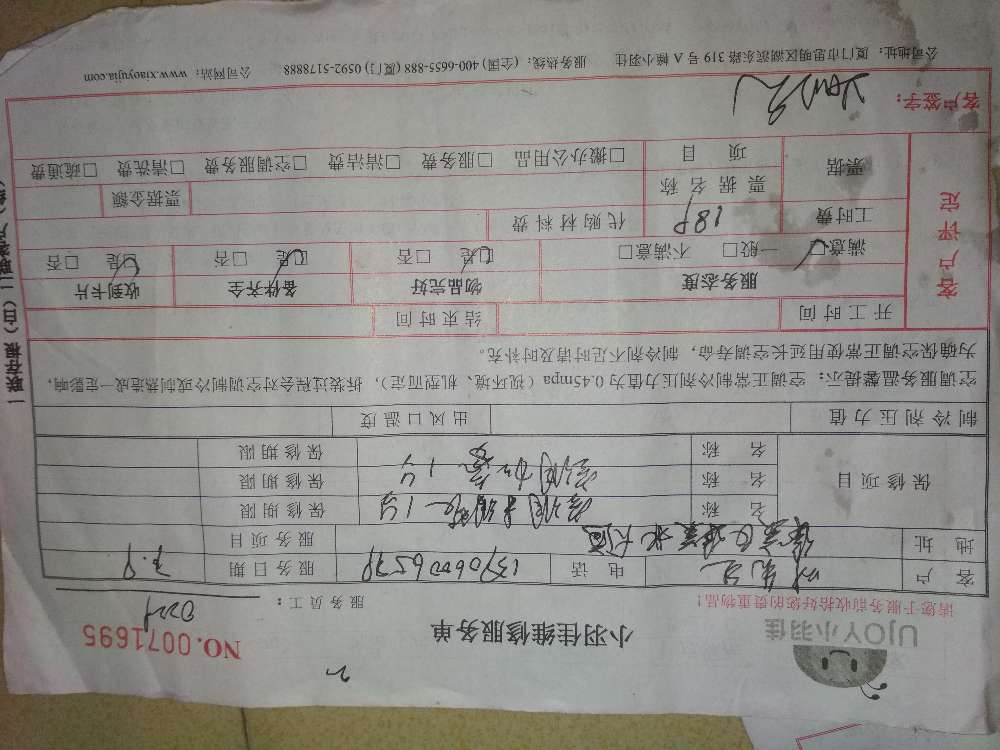 UJOY小羽佳
小羽佳维修服务单
NO.0071695
请您于服务前收拾好您的贵重物品！
服务员工：
客 户
电 话 13706006579
服务日期 7.9
地 址
服务项目
保修项目
名 称
保修期限
名 称
保修期限
名 称
保修期限
制冷剂压力值
出风口温度
空调服务温馨提示：空调正常制冷剂压力值为0.45mpa（视环境、机型而定），拆装过程会对空调制冷或制热造成一定影响，
为确保空调正常使用延长空调寿命，制冷剂不足时请及时补充。
客户评定
开工时间
结束时间
服务态度 物品完好 备件齐全 收到卡片
□满意 一般□ 不满意□ □是 □否 □是 □否 □是 □否
工时费
代购材料费
票据
票据名称
票据金额
项 目
□搬办公用品 □服务费 □清洁费 □空调服务费 □清洗费 □疏通费
客户签字：
公司地址：厦门市思明区湖滨东路319号A幢小羽佳 服务热线：(全国) 400-6655-888 (厦门) 0592-5178888 公司网站：www.xiaoyujia.com